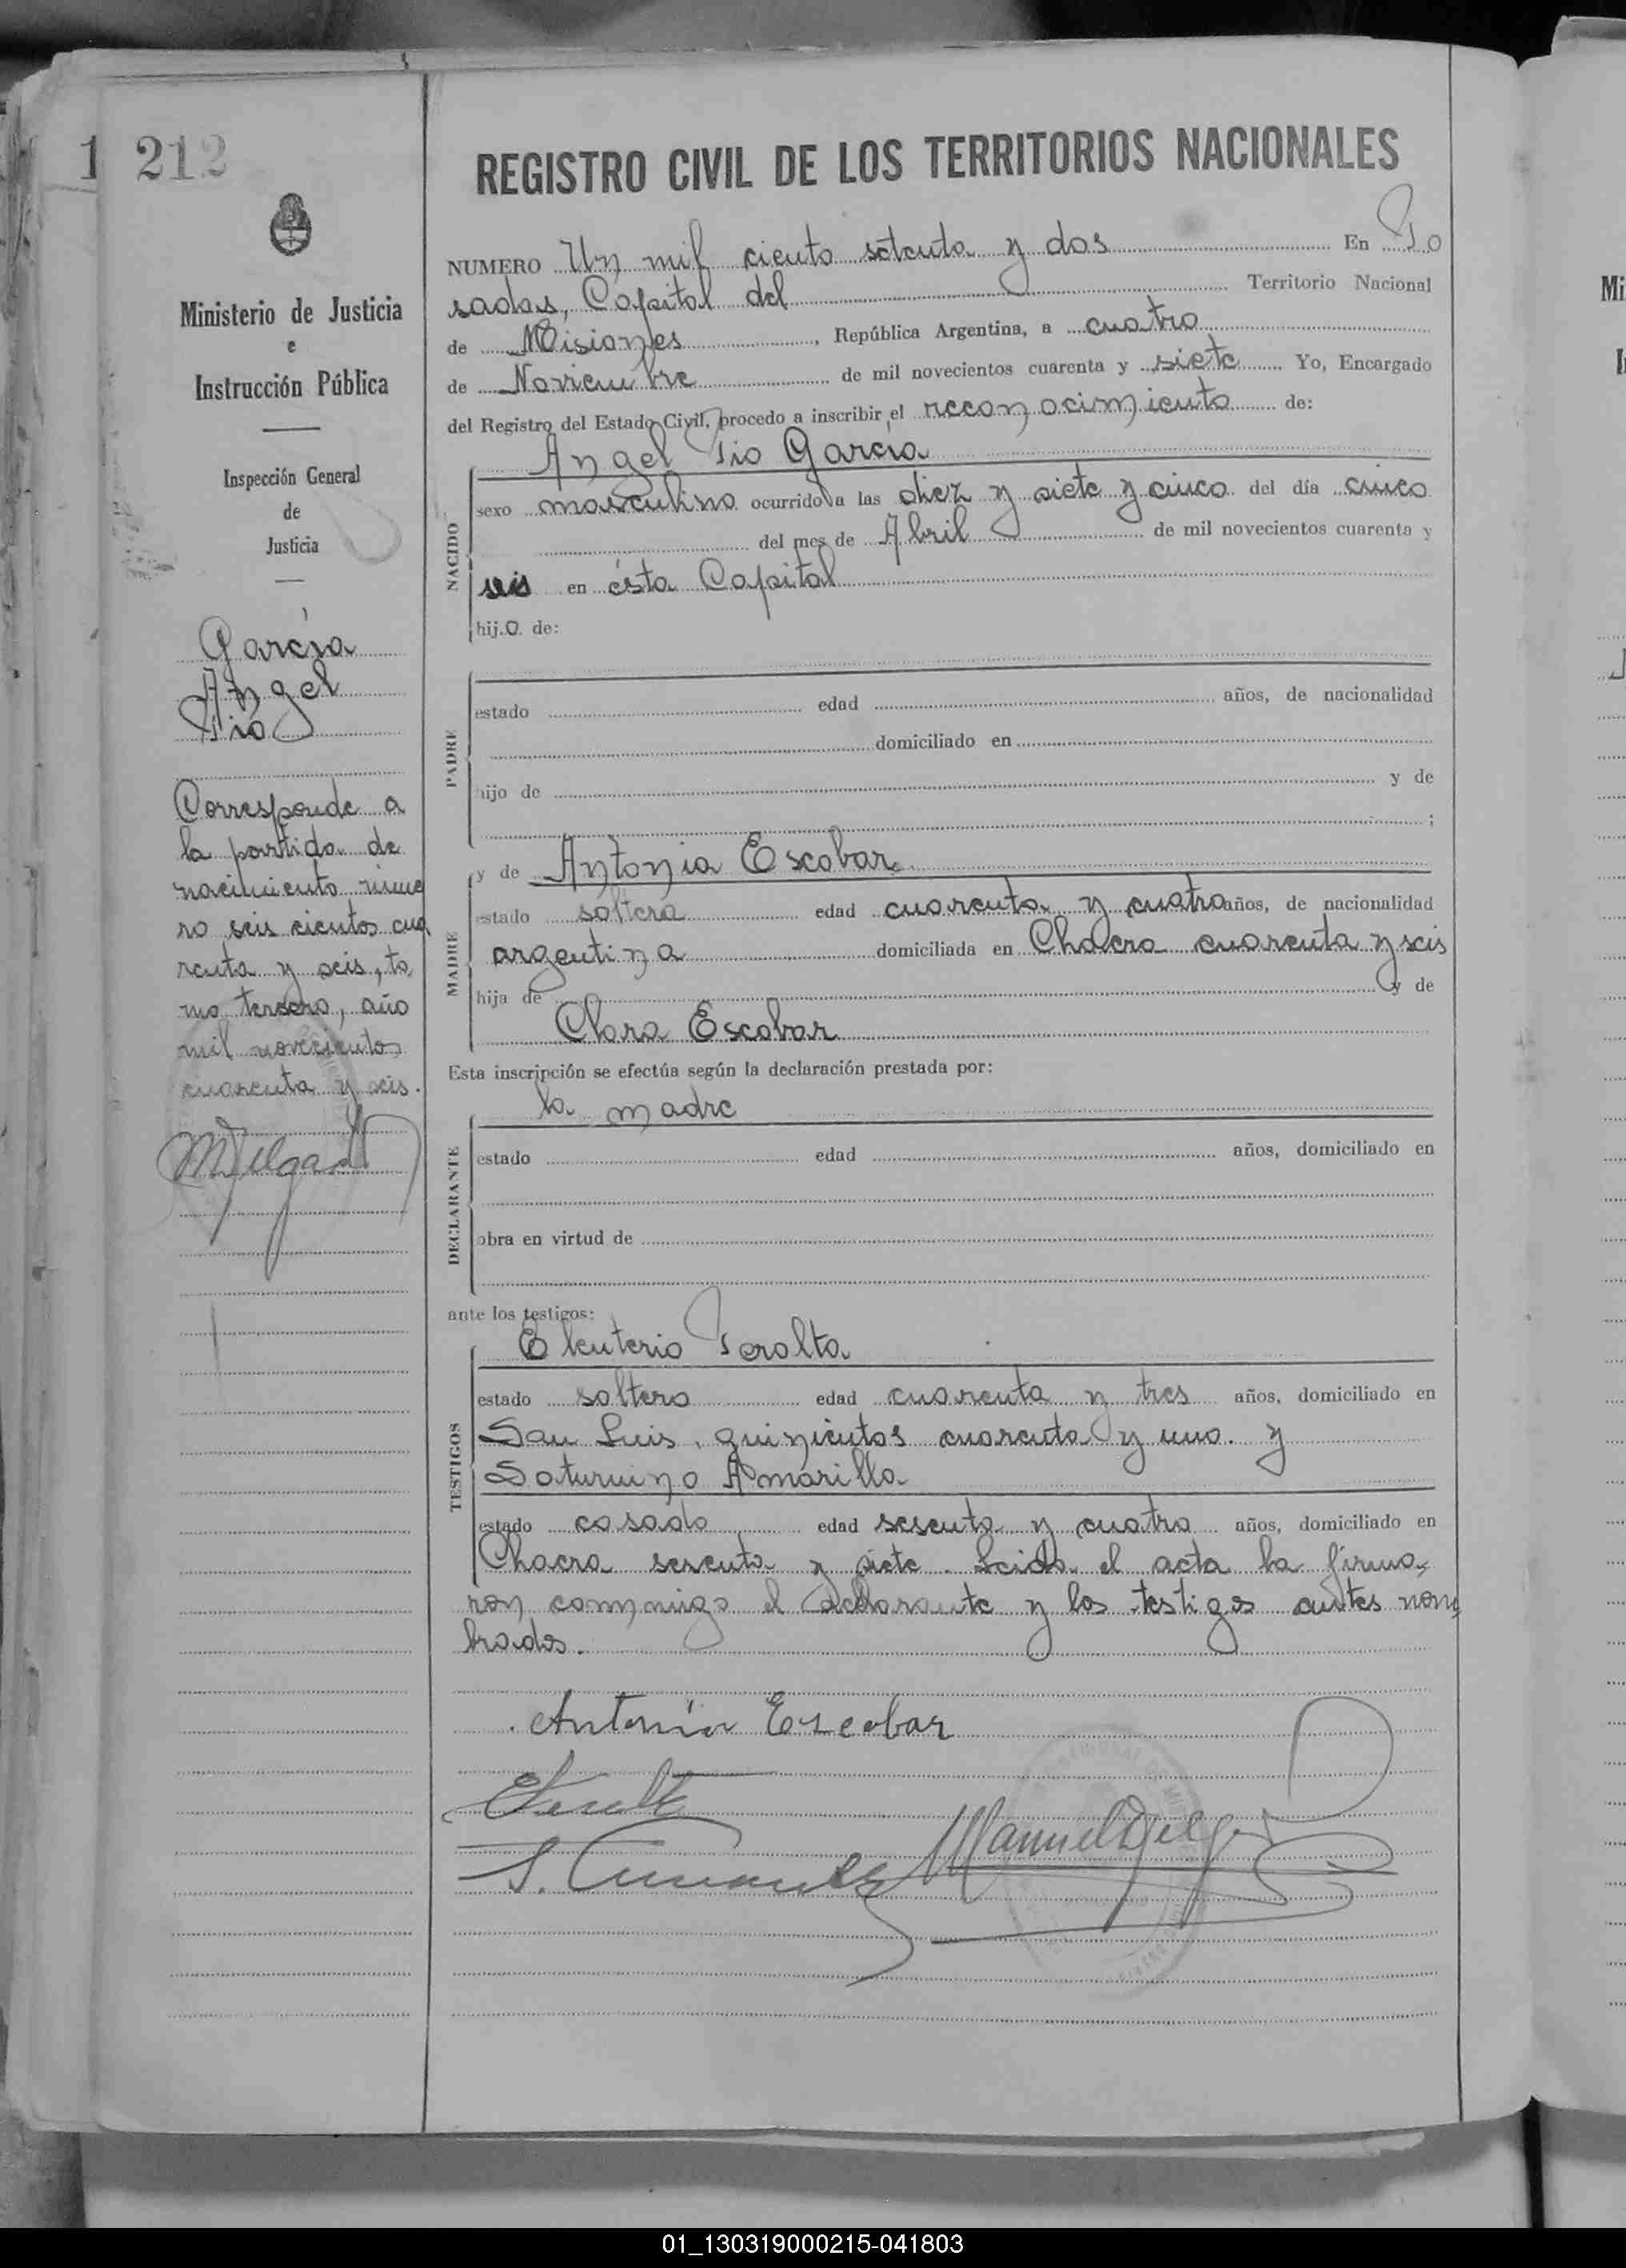 1 212
REGISTRO CIVIL DE LOS TERRITORIOS NACIONALES
Ministerio de Justicia
e
Instrucción Pública
Inspección General
de
Justicia
García
Angel
Pío
Corresponde a
la partida de
nacimiento núme
ro seis cientos cua
renta y seis, to
mo tercero, año
mil novecientos
cuarenta y seis.
MDelgado
NUMERO Un mil ciento setenta y dos En Po
sadas, Capital del Territorio Nacional
de Misiones, República Argentina, a cuatro
de Noviembre de mil novecientos cuarenta y siete Yo, Encargado
del Registro del Estado Civil, procedo a inscribir el reconocimiento de:
Angel Pío García
NACIDO
sexo masculino ocurrido a las diez y siete y cinco del día cinco
del mes de Abril de mil novecientos cuarenta y
seis en ésta Capital
hijo de:
PADRE
estado edad años, de nacionalidad
domiciliado en
hijo de y de
;
y de Antonia Escobar
MADRE
estado soltera edad cuarenta y cuatro años, de nacionalidad
argentina domiciliada en Chacra cuarenta y seis
hija de y de
Clara Escobar
Esta inscripción se efectúa según la declaración prestada por:
la madre
DECLARANTE
estado edad años, domiciliado en
obra en virtud de
ante los testigos:
Eleuterio Peralta
TESTIGOS
estado soltero edad cuarenta y tres años, domiciliado en
San Luis, quinientos cuarenta y uno. y
Saturnino Amarilla
estado casado edad sesenta y cuatro años, domiciliado en
Chacra sesenta y siete. Leída el acta la firma
ron conmigo el declarante y los testigos antes nom
brados.
Antonia Escobar
EPeralta
S. Amarilla
Manuel Delgado
01_130319000215-041803